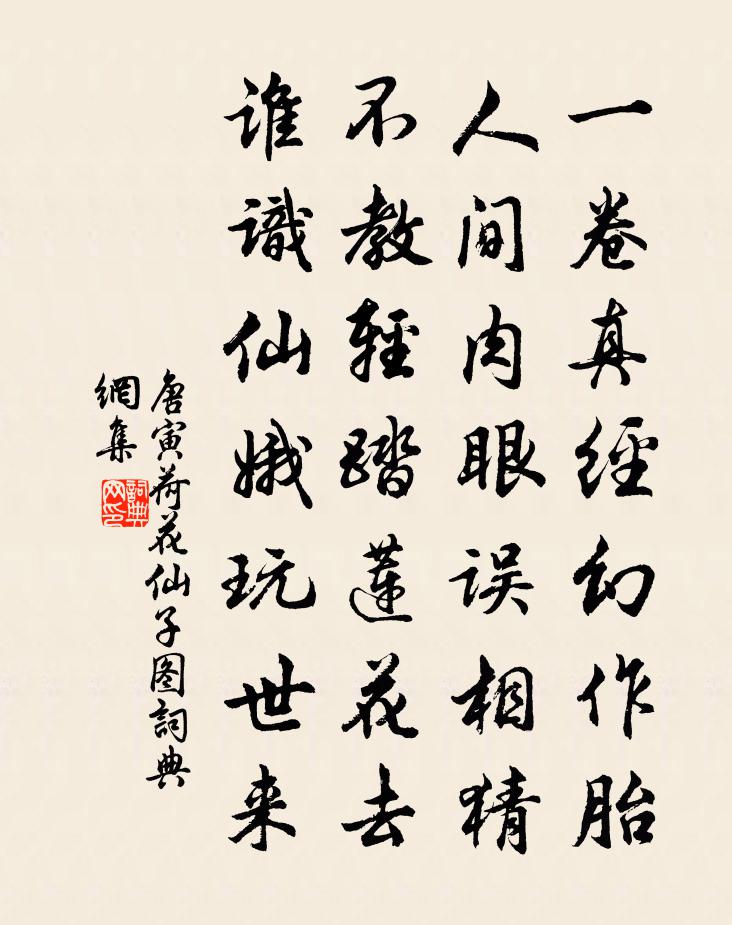 一卷真經幻作胎
人间肉眼误相猜
不教輕踏蓮花去
谁識仙娥玩世来
唐寅荷花仙子图詞典
網集
詞典
网印